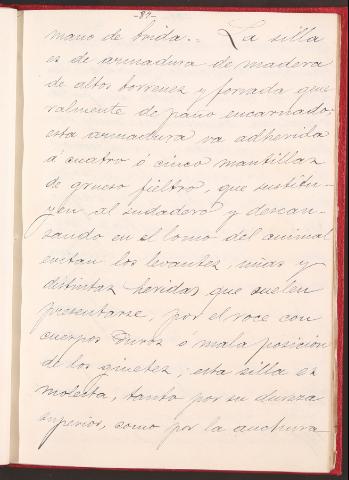 -87-
mano de brida.- La silla
es de armadura de madera
de altos borrenes y forrada que
ralmente de paño encarnado;
esta armadura va adherida
á cuatro ó cinco mantillas
de grueso fieltro, que sustitu-
yen al sudadero y descan-
sando en el lomo del animal
evitan los levantes, uñas y
distintas heridas que suelen
presentarse, por el roce con
cuerpos duros o mala posición
de los ginetes; esta silla es
molesta, tanto por su dureza
superior, como por la anchura